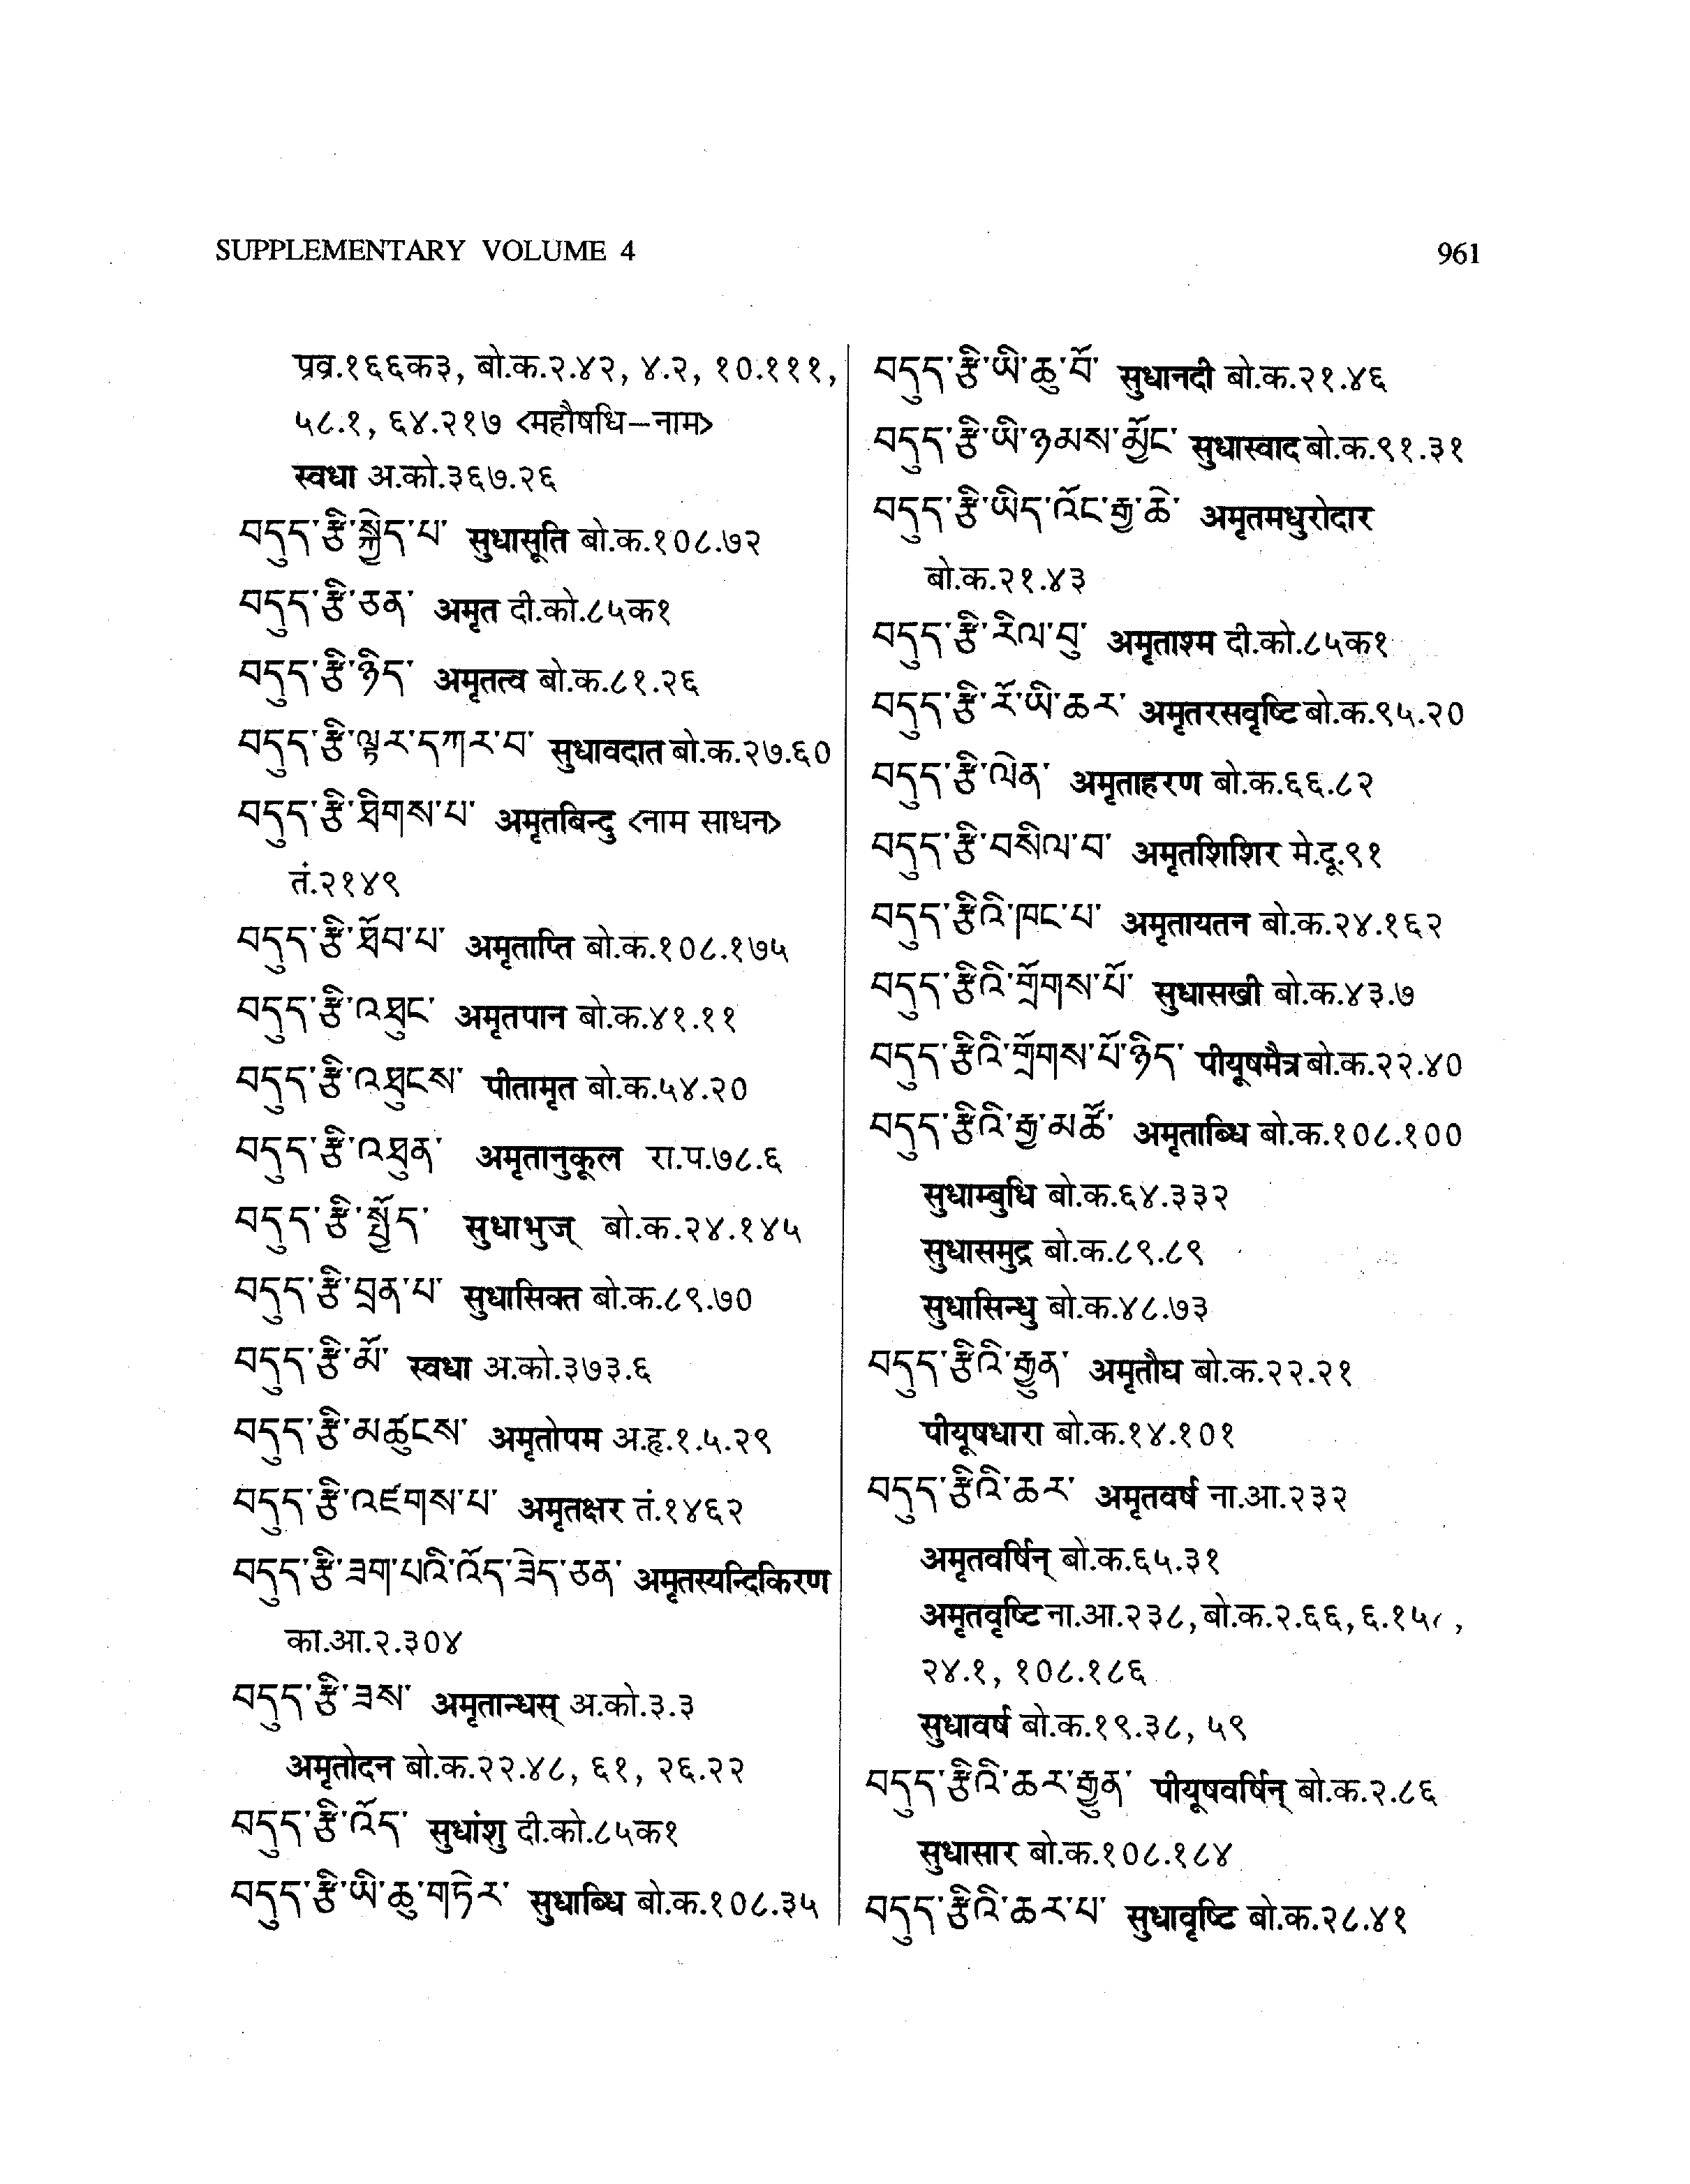 SUPPLEMENTARY VOLUME 4
961
प्रव्र.१६६क३, बो.क.२.४२, ४.२, १०.१११,
५८.१, ६४.२१७ <महौषधि-नाम>
स्वधा अ.को.३६७.२६
བདུད་རྩི་སྐྱེད་པ་ सुधासूति बो.क.१०८.७२
བདུད་རྩི་ཅན་ अमृत दी.को.८५क१
བདུད་རྩི་ཉིད་ अमृतत्व बो.क.८१.२६
བདུད་རྩི་ལྟར་དཀར་བ་ सुधावदात बो.क.२७.६०
བདུད་རྩི་ཐིགས་པ་ अमृतबिन्दु <नाम साधन>
तं.२१४९
བདུད་རྩི་ཐོབ་པ་ अमृताप्ति बो.क.१०८.१७५
བདུད་རྩི་འཐུང་ अमृतपान बो.क.४१.११
བདུད་རྩི་འཐུངས་ पीतामृत बो.क.५४.२०
བདུད་རྩི་འཐུན་ अमृतानुकूल रा.प.७८.६
བདུད་རྩི་སྤྱོད་ सुधाभुज् बो.क.२४.१४५
བདུད་རྩི་བྲན་པ་ सुधासिक्त बो.क.८९.७०
བདུད་རྩི་མོ་ स्वधा अ.को.३७३.६
བདུད་རྩི་མཚུངས་ अमृतोपम अ.हृ.१.५.२९
བདུད་རྩི་འཛགས་པ་ अमृतक्षर तं.१४६२
བདུད་རྩི་ཟག་པའི་འོད་ཟེད་ཅན་ अमृतस्यन्दिकिरण
का.आ.२.३०४
བདུད་རྩི་ཟས་ अमृतान्धस् अ.को.३.३
अमृतोदन बो.क.२२.४८, ६१, २६.२२
བདུད་རྩི་འོད་ सुधांशु दी.को.८५क१
བདུད་རྩི་ཡི་ཆུ་གཏེར་ सुधाब्धि बो.क.१०८.३५
བདུད་རྩི་ཡི་ཆུ་བོ་ सुधानदी बो.क.२१.४६
བདུད་རྩི་ཡི་ཉམས་མྱོང་ सुधास्वाद बो.क.९१.३१
བདུད་རྩི་ཡིད་འོང་རྒྱ་ཆེ་ अमृतमधुरोदार
बो.क.२१.४३
བདུད་རྩི་རིལ་བུ་ अमृताश्म दी.को.८५क१
བདུད་རྩི་རོ་ཡི་ཆར་ अमृतरसवृष्टि बो.क.९५.२०
བདུད་རྩི་ལེན་ अमृताहरण बो.क.६६.८२
བདུད་རྩི་བསིལ་བ་ अमृतशिशिर मे.दू.९१
བདུད་རྩིའི་ཁང་པ་ अमृतायतन बो.क.२४.१६२
བདུད་རྩིའི་གྲོགས་པོ་ सुधासखी बो.क.४३.७
བདུད་རྩིའི་གྲོགས་པོ་ཉིད་ पीयूषमैत्र बो.क.२२.४०
བདུད་རྩིའི་རྒྱ་མཚོ་ अमृताब्धि बो.क.१०८.१००
सुधाम्बुधि बो.क.६४.३३२
सुधासमुद्र बो.क.८९.८९
सुधासिन्धु बो.क.४८.७३
བདུད་རྩིའི་རྒྱུན་ अमृतौघ बो.क.२२.२१
पीयूषधारा बो.क.१४.१०१
བདུད་རྩིའི་ཆར་ अमृतवर्ष ना.आ.२३२
अमृतवर्षिन् बो.क.६५.३१
अमृतवृष्टि ना.आ.२३८, बो.क.२.६६,
२४.१, १०८.१८६
सुधावर्ष बो.क.१९.३८, ५९
བདུད་རྩིའི་ཆར་རྒྱུན་ पीयूषवर्षिन् बो.क.२.८६
सुधासार बो.क.१०८.१८४
བདུད་རྩིའི་ཆར་པ་ सुधावृष्टि बो.क.२८.४१